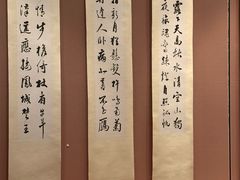 露下天高秋水清空山獨
夜旅魂驚疎燈自照孤帆
新月猶懸雙杵鳴南菊
逢人卧病北書不至雁
情步檐倚杖看牛斗
漢遥應接鳳城